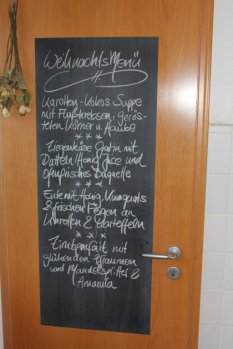 Weihnachtsmenü
Karotten-Kokos Suppe
mit Flußkrebsen, gerös-
teten Körner u. Haube
* * *
Ziegenkäse Gratin mit
Datteln/Honig and
ofenfrisches Baguette
* * *
Ente mit Honig, Kumquats
& frischen Feigen an
Karotten & Kartoffeln
* * *
Zimtparfait mit
glühenden Pflaumen
und Mandelsplitter &
Amarula